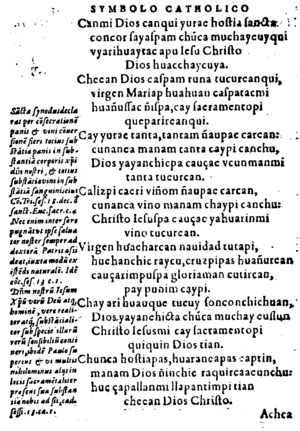 SYMBOLO CATHOLICO
Canmi Dios canqui yurac hostia sancta
concor sayaspam chũca muchaycuyqui
vyarihuaytac apu Iesu Christo
Dios huacchaycuya.
Checan Dios caspam runa tucurcanqui,
virgen Mariap huahuan captaicum
huañussac ñispa, cay sacramentopi
queparircanqui.
Cay yurac tanta, tantam ñaupac carcan:
cunanca manam tanta caypi canchu,
Dios yayanchicpa cauçac vcunmanmi
tanta tucurcan.
Calizpi cacri vinom ñaupac carcan,
cunanca vino manam chaypi canchu:
Christo Iesuspa cauçac yahuarinmi
vino tucurcan.
Virgen huacharcan nauidad tutapi,
huchanchic raycu, cruzpipas huañurcan
cauçarimpuspa gloriaman cutircan,
pay punim caypi.
Chay ari huauque tucuy sonconchichuan,
Dios yayanchicta chũca muchaycusun
Christo Iesusmi cay sacramentopi
quiquin Dios tian.
Chunca hostiapas, huarancapas captin,
manam Dios ñinchic raquircaacunchu:
huc çapallanmi llapantimpi tian
checan Dios Christo.
Achca
Sãcta synodus decla
rat per cõsecrationẽ
panis & vini conuer
sionẽ fieri totius sub
stãtiæ panis in sub-
stantiã corporis xpi
dñi nostri, & totius
substãtiæ vini in sub
stãtiã sanguinis eius
Cõ.Tri.ses.13.dec.d
sanct. Euc. sacr.c.4.
Nec enim inter se re
pugnãt vt ipse salua
tor noster semper ad
dexterã Patris assi
deat, iuxta modũ ex
istẽdi naturalẽ. Idẽ
cõc. ses. 13 c.1.
Dñm nostrũ Iesum
Xpũ verũ Deũ atq;
hominẽ, vere reali-
ter atq; substãtiali-
ter sub specie illarũ
rerũ sensibiliũ conti
neri, ibidẽ Paulo su
perius & vt multis
nihilominus alijs in
locis sacramẽtaliter
præsens sua substan
tia nobis adsit, ead.
sess. 13. ca. 1.